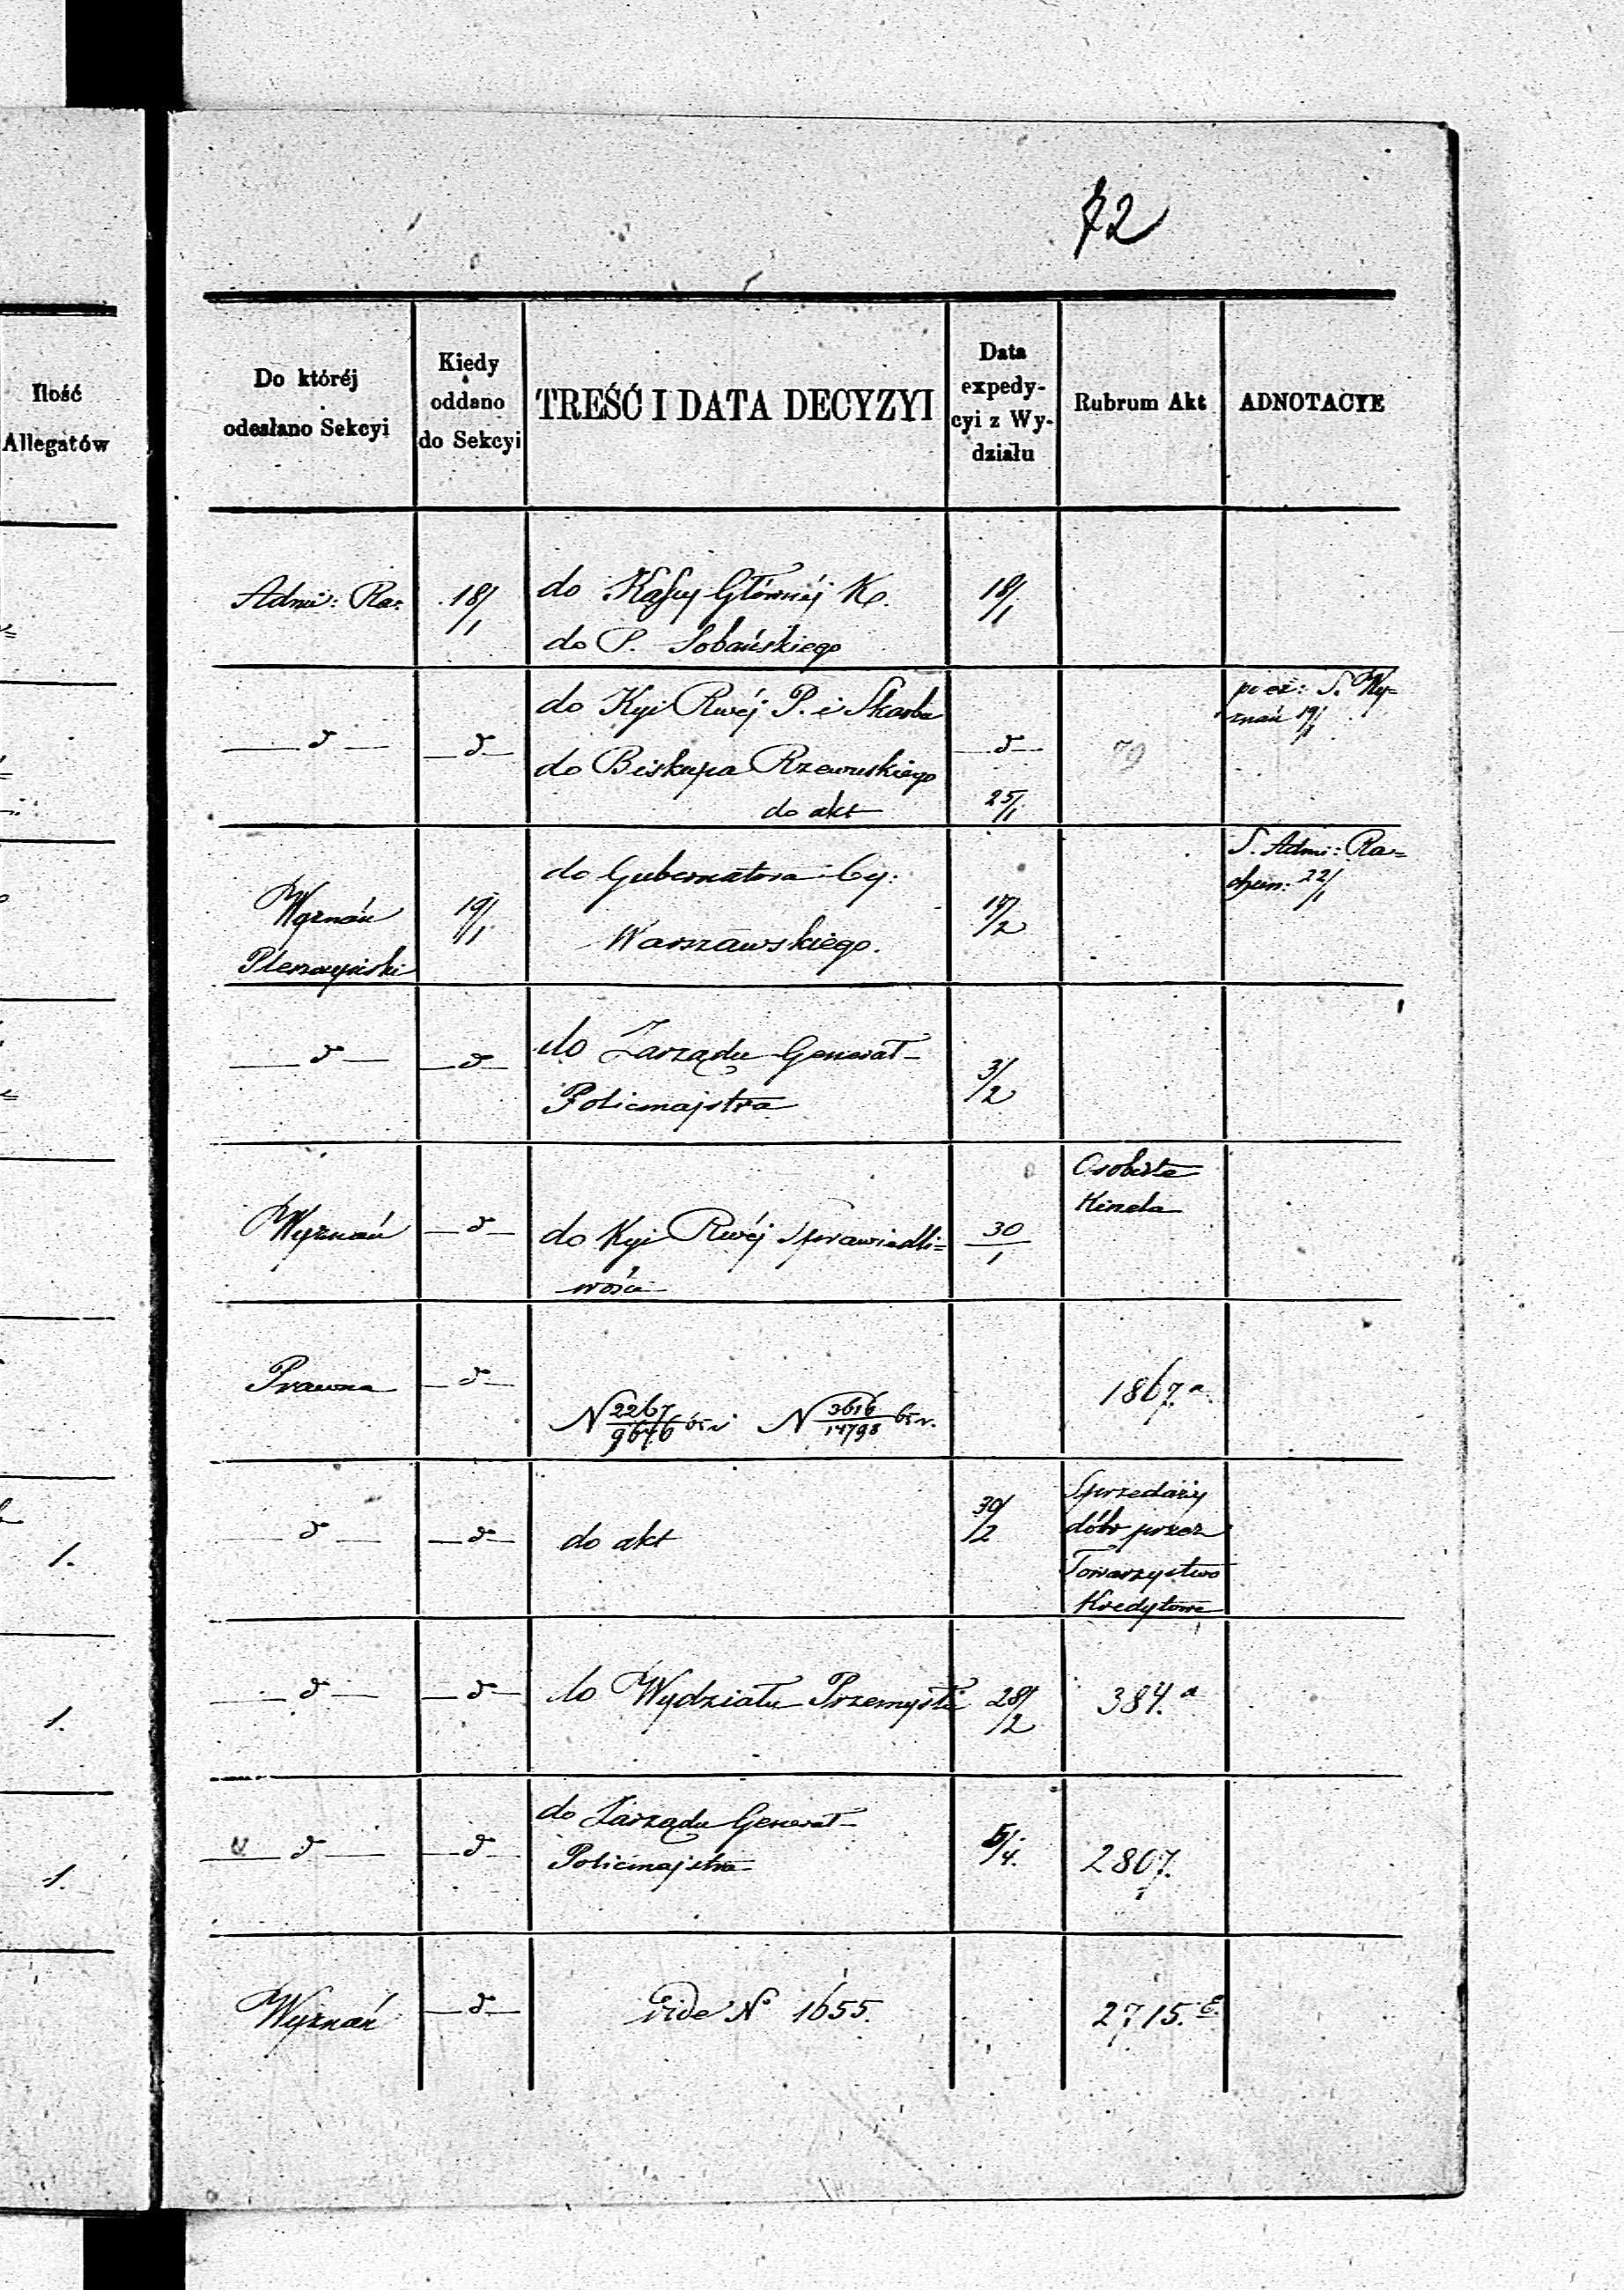 72
Ilość
Allegatów
Do któréj
odesłano Sekcyi
Kiedy
oddano
do Sekcyi
TREŚĆ I DATA DECYZYI
Data
expedy-
cyi z Wy-
działu
Rubrum Akt
ADNOTACYE
Admi: Ra:
18/1
do Kassy Głównéj K.
do P. Sobańskiego
18/1
— d —
— d —
do Kyi Rwéj P. i Skarbu
do Biskupa Rzewuskiego
do akt
— d —
25/1
79
S. Wy=
znań 19/1
Wyznań
19/1
do Gubernatora Cy:
Warszawskiego.
17/2
S. Admi: Ra=
chun: 22/1
— d —
— d —
do Zarządu Generał-
Policmajstra
3/2
Wyznań
— d —
do Kyi Rwéj Sprawiedli=
wości
30/1
Osobiste
Kinela
Prawna
— d —
N 2267/9646 6 N 3616/14798
1867.a
— d —
— d —
do akt
30/2
Sprzedaży
dóbr przez
Towarzystwo
Kredytowe
1.
— d —
— d —
do Wydziału Przemysłu
28/2
384.a
1.
— d —
— d —
do Zarządu Generał-
Policmajstra
5/4.
2807.
1.
Wyznań
— d —
Vide No 1655.
2715.E.